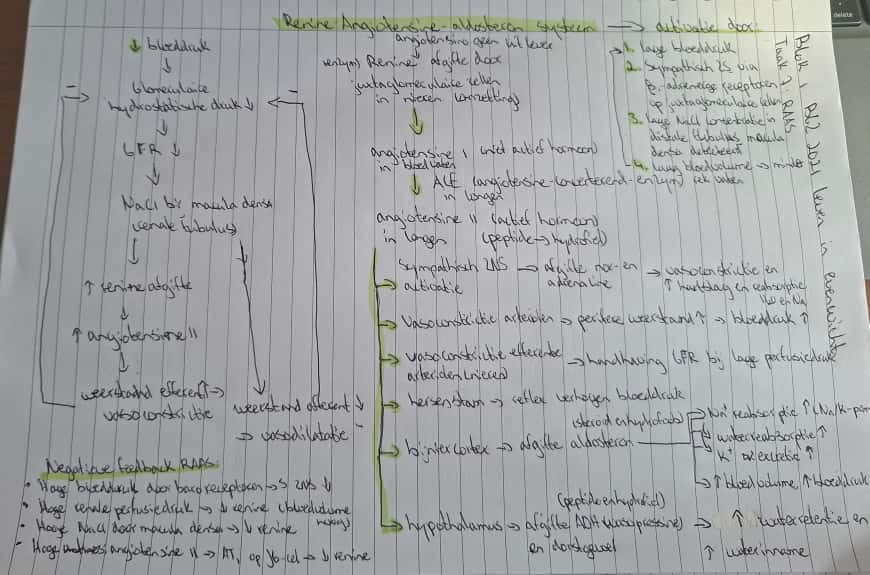 Renine Angiotensine-aldosteron systeem → activatie door:
1. lage bloeddruk
2. Sympathisch ZS via
β1-adrenerge receptoren
op juxtaglomerulaire cellen
3. lage NaCl concentratie in
distale tubulus macula
densa detecteert
4. laag bloedvolume → minder
rek
Blok 1 B62 2021 leven in evenwicht
Taak 7: RAAS
↓ bloeddruk
↓
Glomerulaire
hydrostatische druk ↓
↓
GFR ↓
↓
NaCl bij macula densa
(renale tubulus)
↓
↑ renine afgifte
↓
↑ angiotensine II
↓
weerstand efferent ↑ →
vasoconstrictie
weerstand afferent ↓
→ vasodilatatie
−
−
angiotensinogeen uit lever
(enzym) Renine afgifte door
juxtaglomerulaire cellen
in nieren (omzetting)
↓
angiotensine I (niet actief hormoon)
in bloedvaten
↓ ACE (angiotensine-converterend-enzym)
in longen
angiotensine II (actief hormoon)
in longen (peptide → hydrofiel)
→ Sympathisch ZNS → afgifte nor-en → vasoconstrictie en
activatie adrenaline ↑ hartslag en reabsorptie
H2O en Na
→ Vasoconstrictie arteriolen → perifere weerstand ↑ → bloeddruk ↑
→ vasoconstrictie efferente → handhaving GFR bij lage perfusiedruk
arteriolen (nieren)
→ hersenstam → reflex verhogen bloeddruk
(steroid en hydrofoob)
→ bijniercortex → afgifte aldosteron
→ Na+ reabsorptie ↑ (Na/K-pomp
→ waterreabsorptie ↑
→ K+ excretie ↑
→ ↑ bloedvolume / ↑ bloeddruk
(peptide en hydrofiel)
→ hypothalamus → afgifte ADH (vasopressine) → ↑ waterretentie en
en dorstgevoel ↑ waterinname
Negatieve feedback RAAS:
• Hoge bloeddruk door baroreceptoren → S ZNS ↓
• Hoge renale perfusiedruk → ↓ renine (bloedvolume
• Hoge NaCl door macula densa → ↓ renine
• Hoge angiotensine II → AT1 op JG-cel → ↓ renine